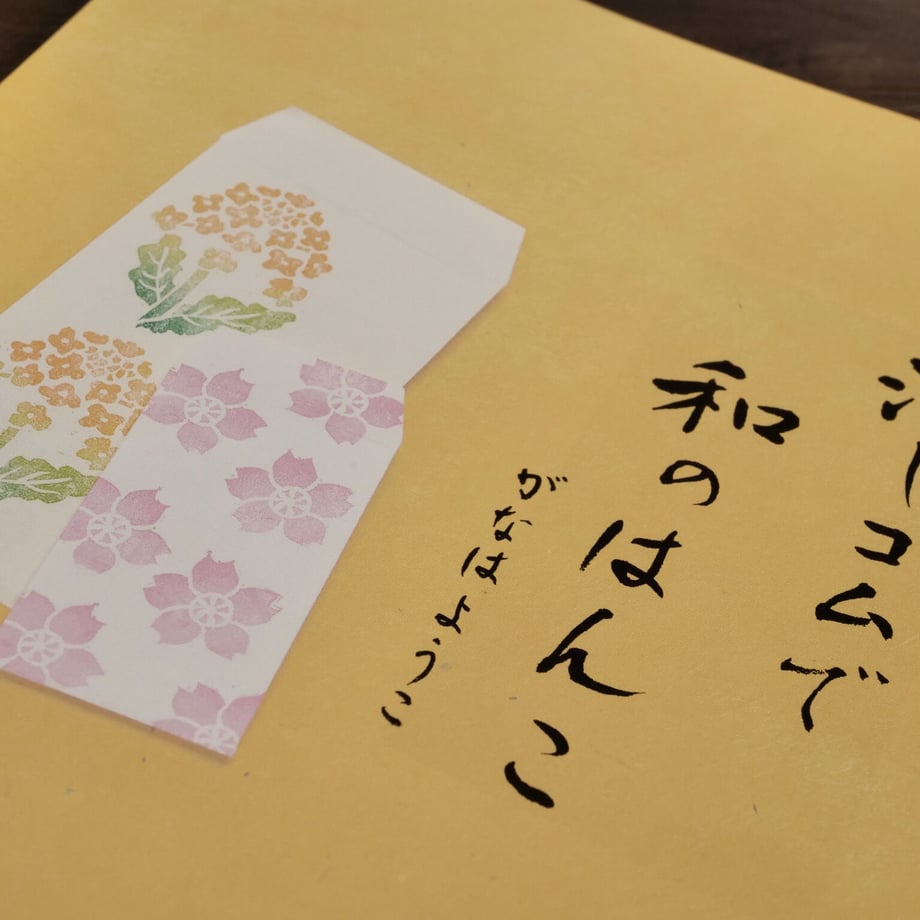 消しゴムで
和のはんこ
がなはようこ